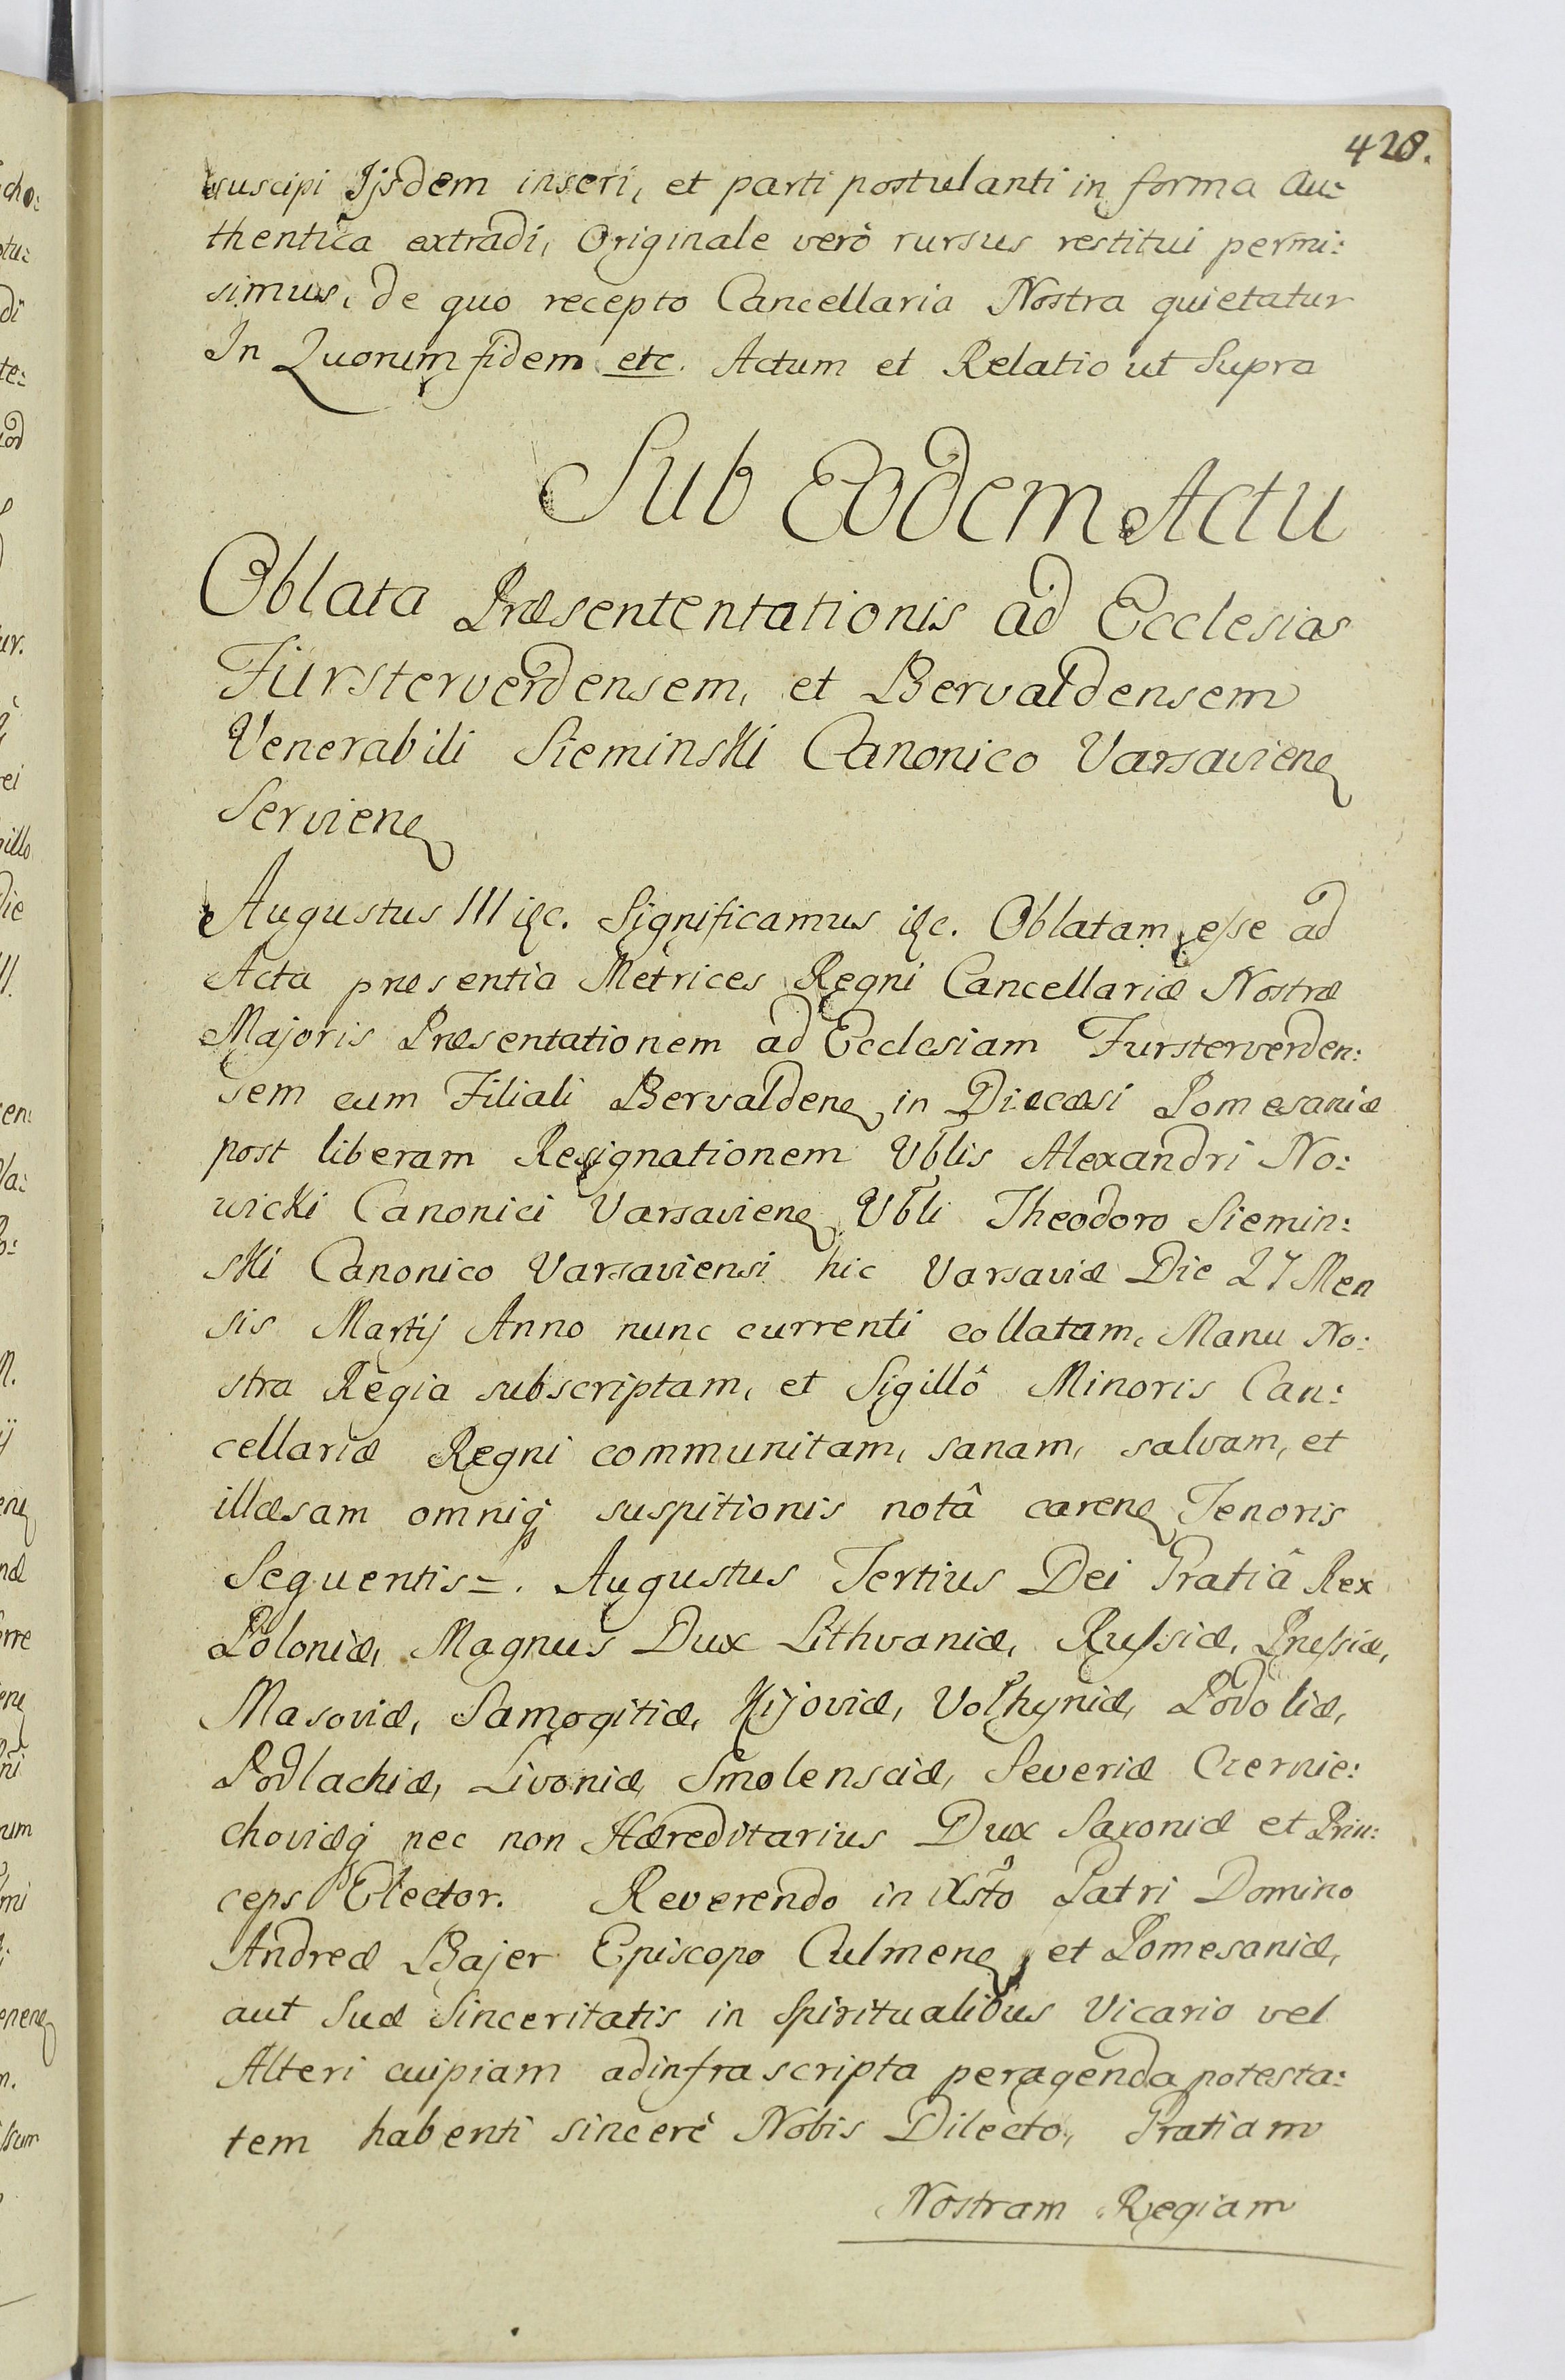 428.
suscipi Ijsdem inseri, et parti postulanti in forma Au:
thentica extradi, Originale verò rursus restitui permi:
simus, de quo recepto Cancellaria Nostra quietatur
In Quorum fidem etc. Actum et Relatio ut Supra
Sub Eodem Actu
Oblata Præsententationis ad Ecclesias
Fursterwerdensem, et Bervaldensem
Venerabili Sieminski Canonico Varsavien̄
Servien̄
Augustus III etc. Significamus etc. Oblatam esse ad
Acta præsentia Metrices Regni Cancellariæ Nostræ
Majoris Præsentationem ad Ecclesiam Fursterwerden:
sem cum Filiali Bervalden̄ in Diæcæsi Pomesaniæ
post liberam Resignationem Vblis Alexandri No:
wicki Canonici Varsavien̄ Vbli Theodoro Siemin:
ski Canonico Varsaviensi hic Varsaviæ Die 27 Men
sis Martij Anno nunc currenti collatam, Manu No:
stra Regia subscriptam, et Sigillô Minoris Can:
cellariæ Regni communitam, sanam, salvam, et
illæsam omniq; suspitionis notâ caren̄ Tenoris
Sequentis =. Augustus Tertius Dei Gratiâ Rex
Poloniæ, Magnus Dux Lithvaniæ, Russiæ, Prussiæ,
Masoviæ, Samogitiæ, Kijoviæ, Volhyniæ, Podoliæ,
Podlachiæ, Livoniæ, Smolensciæ, Severiæ Czernie:
choviæq; nec non Hæreditarius Dux Saxoniæ et Prin:
ceps Elector. Reverendo in Xsto Patri Domino
Andreæ Bajer Episcopo Culmen̄, et Pomesaniæ,
aut Suæ Sinceritatis in Spiritualibus Vicario vel
Alteri cuipiam adinfrascripta peragenda potesta:
tem habenti sincerè Nobis Dilecto, Gratiam
Nostram Regiam